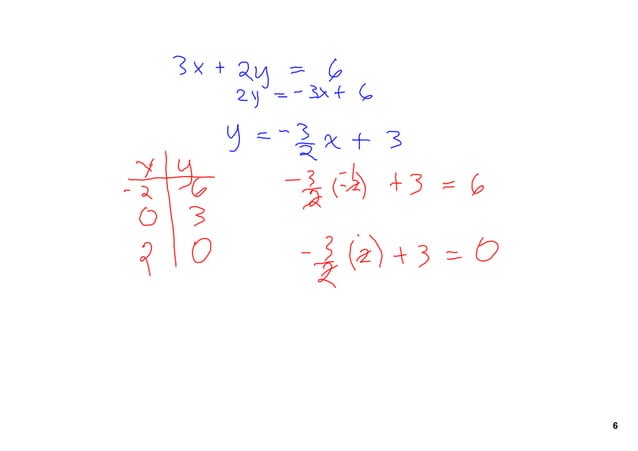 3x + 2y = 6
2y = -3x + 6
y = -3/2 x + 3
x | y
-2 | 6
0 | 3
2 | 0
-3/2 (-2) + 3 = 6
-3/2 (2) + 3 = 0
6